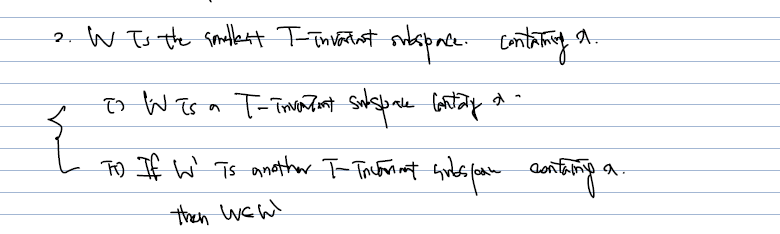 2. W is the smallest T-invariant subspace. containing x.
i) W is a T-invariant subspace containg x.
ii) If W' is another T-invariant subspace containing x.
then W⊂W'